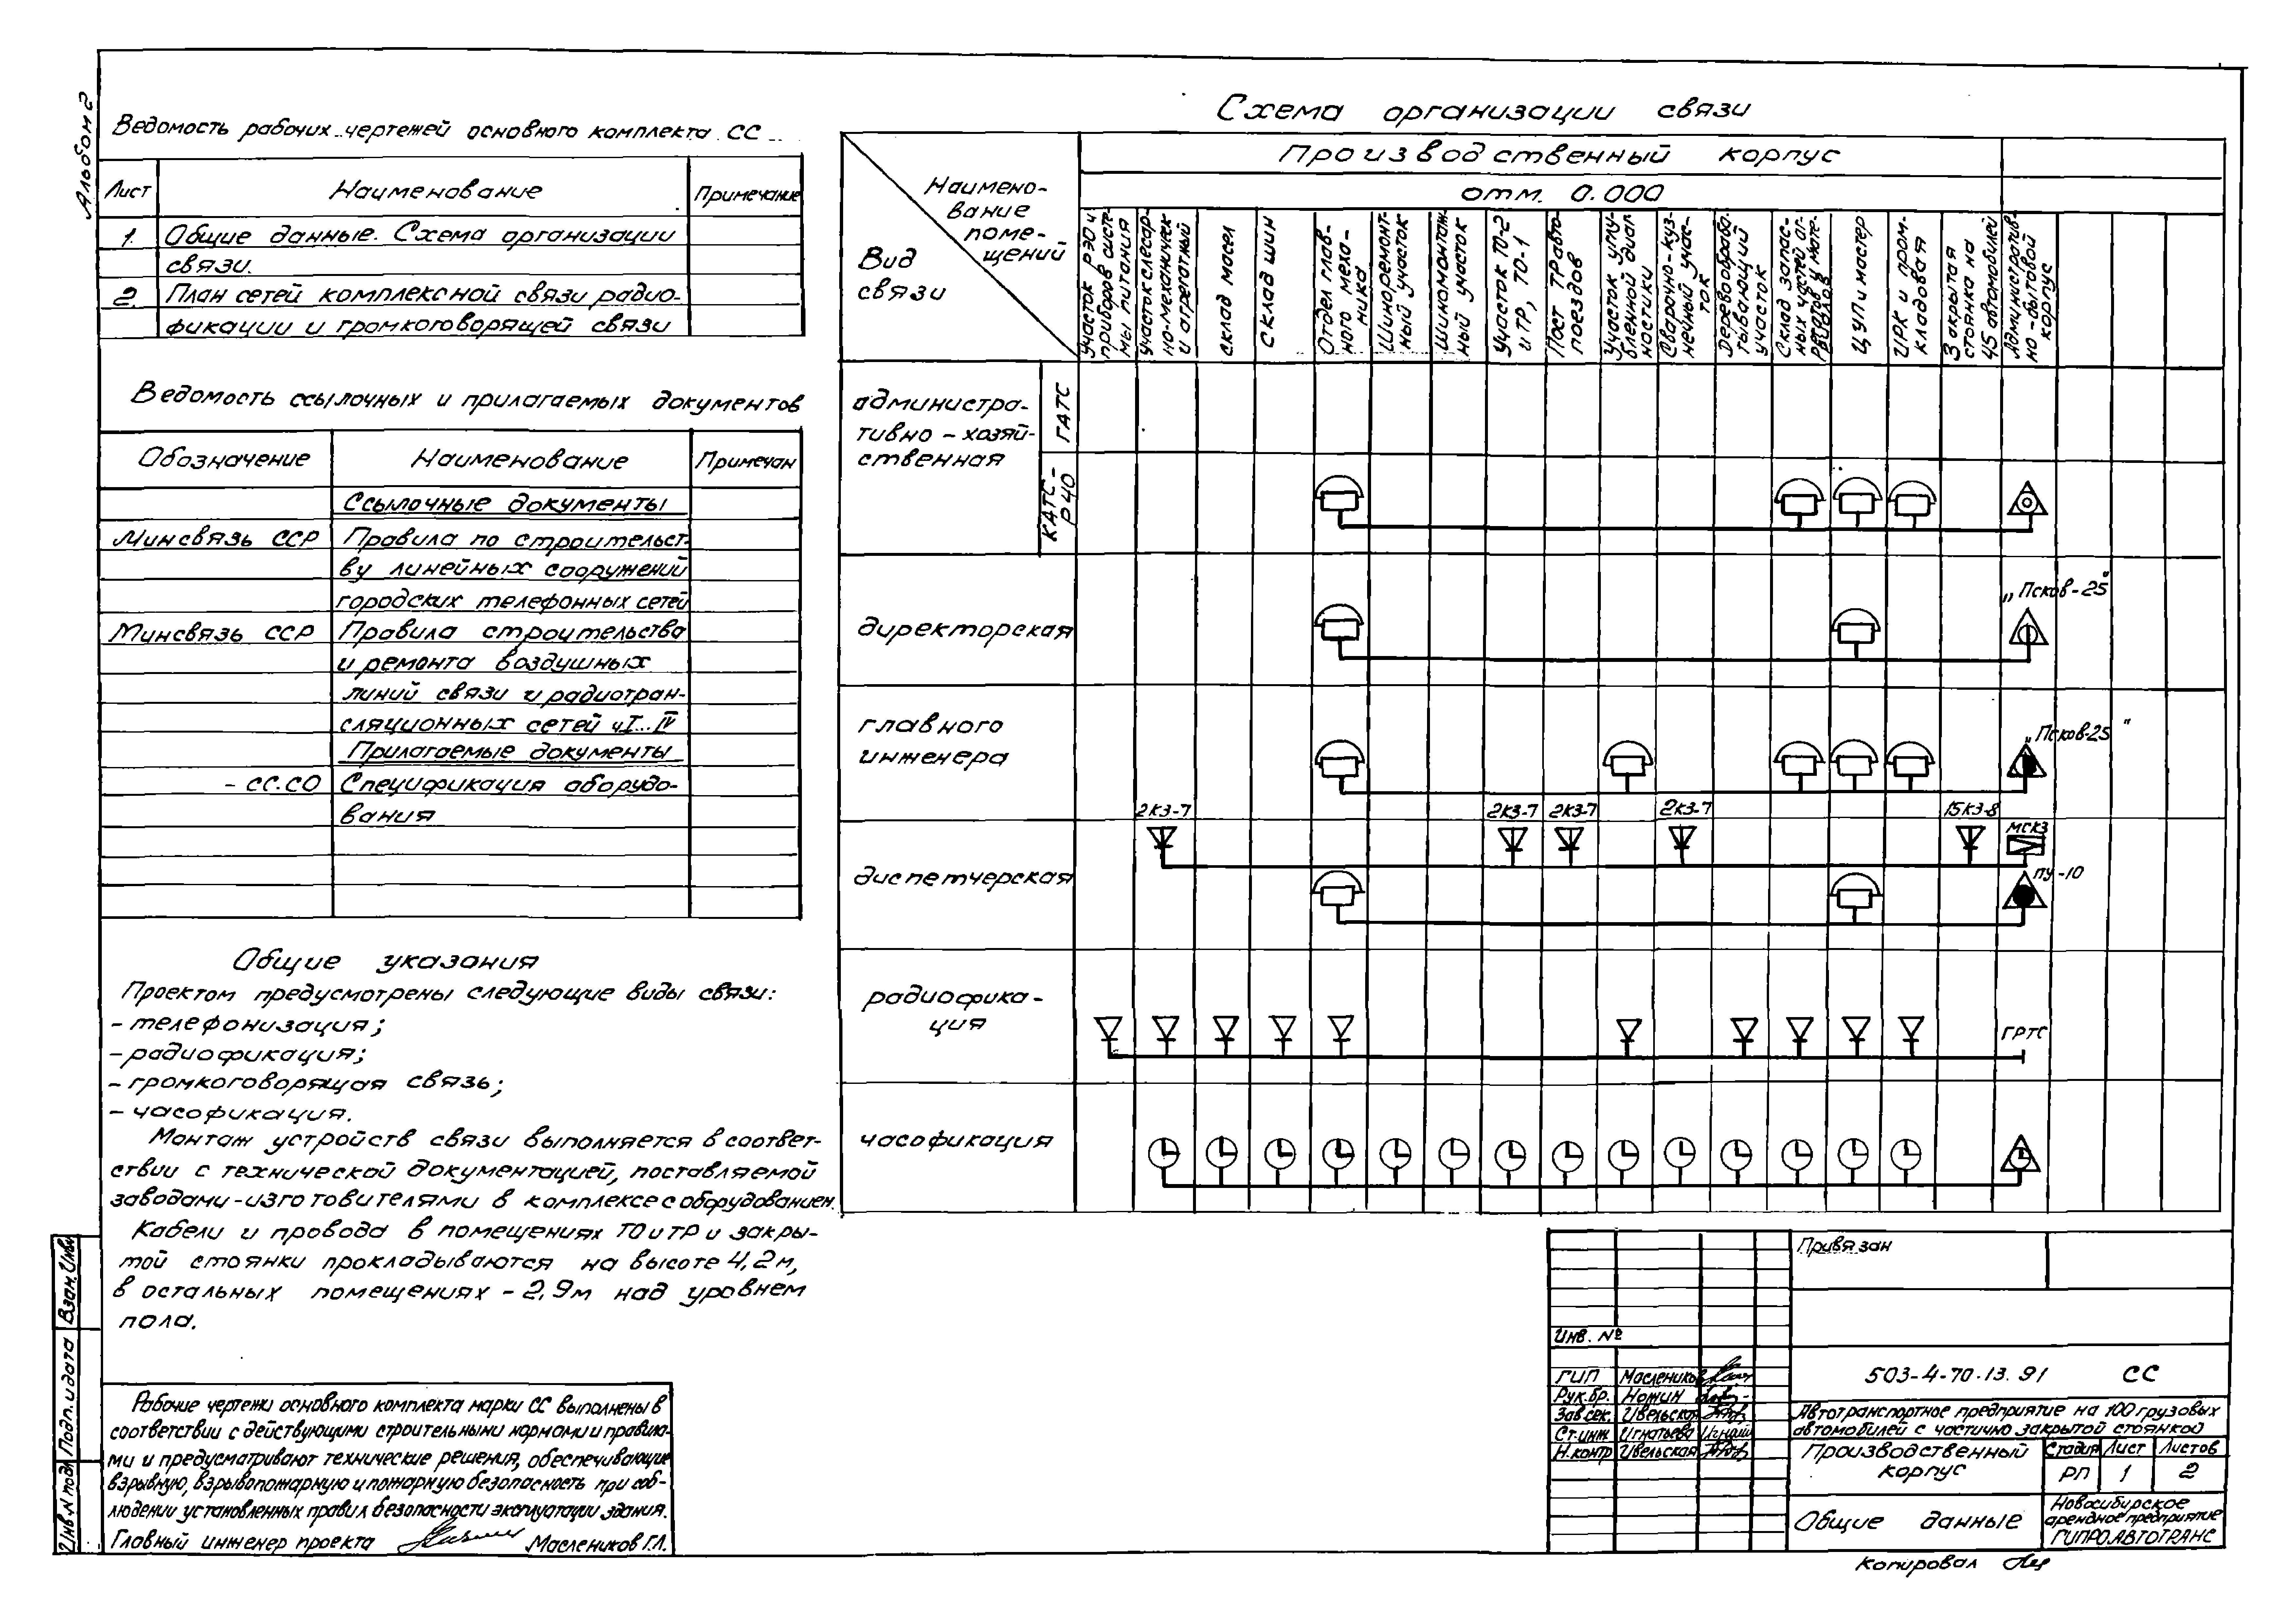 Альбом 2
Ведомость рабочих чертежей основного комплекта СС
Лист
Наименование
Примечание
1.
Общие данные. Схема организации
связи.
2.
План сетей комплексной связи радио-
фикации и громкоговорящей связи
Ведомость ссылочных и прилагаемых документов
Обозначение
Наименование
Примечан
Ссылочные документы
Минсвязь ССР
Правила по строительст-
ву линейных сооружений
городских телефонных сетей
Минсвязь ССР
Правила строительства
и ремонта воздушных
линий связи и радиотран-
сляционных сетей ч.I...IV
Прилагаемые документы
- СС.СО
Спецификация оборудо-
вания
Общие указания
Проектом предусмотрены следующие виды связи:
- телефонизация;
- радиофикация;
- громкоговорящая связь;
- часофикация.
Монтаж устройств связи выполняется в соответ-
ствии с технической документацией, поставляемой
заводами-изготовителями в комплексе с оборудованием.
Кабели и провода в помещениях ТО и ТР и закры-
той стоянки прокладываются на высоте 4,2 м,
в остальных помещениях - 2,9 м над уровнем
пола.
Рабочие чертежи основного комплекта марки СС выполнены в
соответствии с действующими строительными нормами и правила-
ми и предусматривают технические решения, обеспечивающие
взрывную, взрывопожарную и пожарную безопасность при соб-
людении установленных правил безопасности эксплуатации здания.
Главный инженер проекта
Маслеников Г.Л.
Взам. Инв
Подп. и дата
Инв. N подл
Схема организации связи
Наимено-
вание
поме-
щений
Вид
связи
Производственный корпус
отм. 0.000
Участок РЭО и
приборов систе-
мы питания
Участок слесар-
но-механическ
и агрегатный
склад масел
склад шин
Отдел глав-
ного меха-
ника
Шиноремонт-
ный участок
Шиномонтаж-
ный участок
Участок ТО-2
и ТР, ТО-1
Пост ТР авто-
поездов
Участок углу-
бленной диаг
ностики
Сварочно-куз-
нечный учас-
ток
Деревообраба-
тывающий
участок
Склад запас-
ных частей аг-
регатов и мате-
риалов
ЦУП и мастер
ИРК и пром.
кладовая
Закрытая
стоянка на
45 автомобилей
Административ-
но-бытовой
корпус
администра-
тивно - хозяй-
ственная
ГАТС
КАТС-
Р40
директорская
„Псков-25"
главного
инженера
„Псков-25"
2КЗ-7
2КЗ-7
2КЗ-7
2КЗ-7
15КЗ-8
МСКЗ
диспетчерская
ПУ-10
радиофика-
ция
ГРТС
часофикация
Привязан
Инв. №
ГИП
Маслеников
Рук.бр.
Номин
Зав сек.
Ивельская
Ст.инж
Игнатьева
Н.контр
Ивельская
503-4-70.13.91 СС
Автотранспортное предприятие на 100 грузовых
автомобилей с частично закрытой стоянкой
Производственный
корпус
Стадия
Лист
Листов
РП
1
2
Общие данные
Новосибирское
арендное предприятие
ГИПРОАВТОТРАНС
Копировал